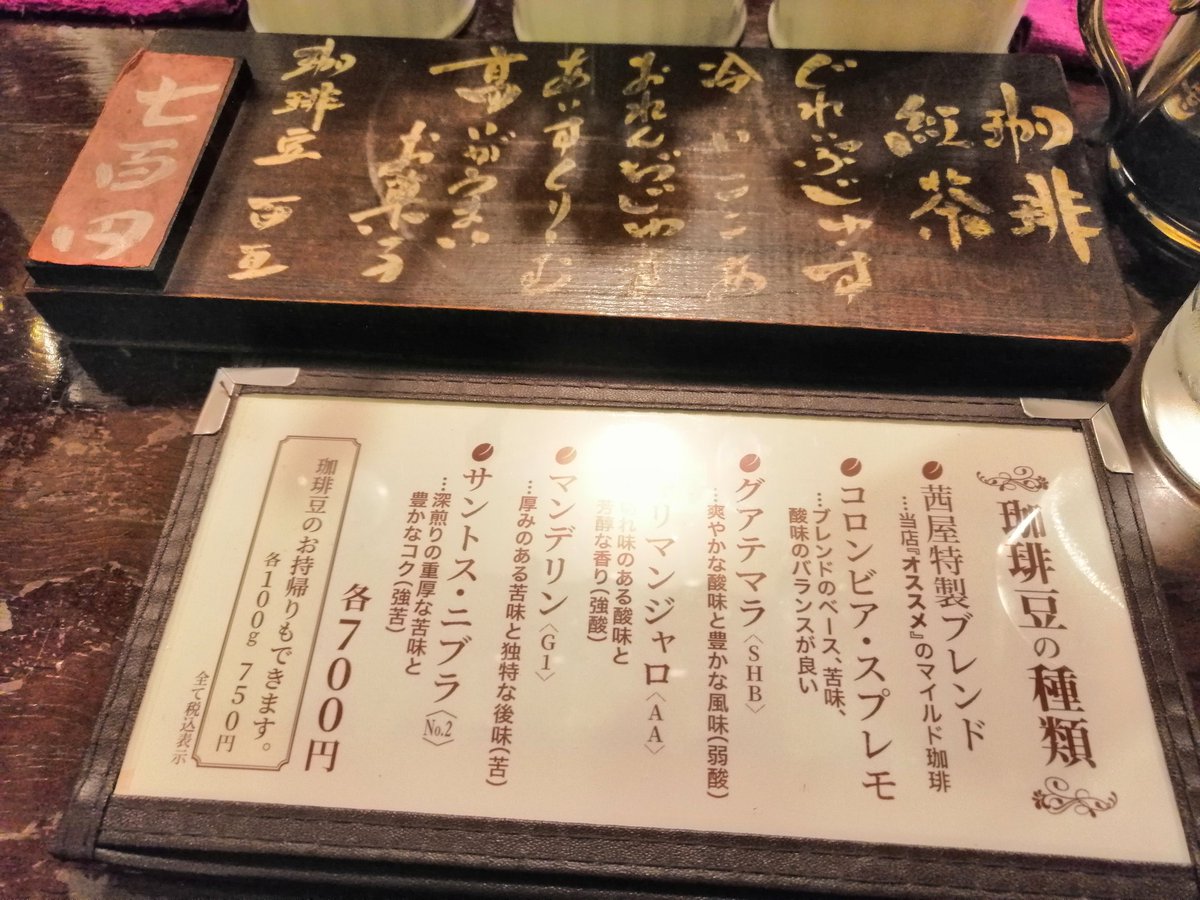 珈琲
紅茶
ぐれーぷじゅーす
冷いここあ
おれんぢじゅーす
あいすくりーむ
お菓子
珈琲豆
七百円
珈琲豆の種類
茜屋特製ブレンド
…当店『オススメ』のマイルド珈琲
コロンビア・スプレモ
…ブレンドのベース、苦味、
酸味のバランスが良い
グアテマラ〈SHB〉
…爽やかな酸味と豊かな風味(弱酸)
リマンジャロ〈AA〉
れ味のある酸味と
芳醇な香り(強酸)
マンデリン〈G1〉
…厚みのある苦味と独特な後味(苦)
サントス・ニブラ〈No.2〉
…深煎りの重厚な苦味と
豊かなコク(強苦)
各700円
珈琲豆のお持帰りもできます。
各100g 750円
全て税込表示